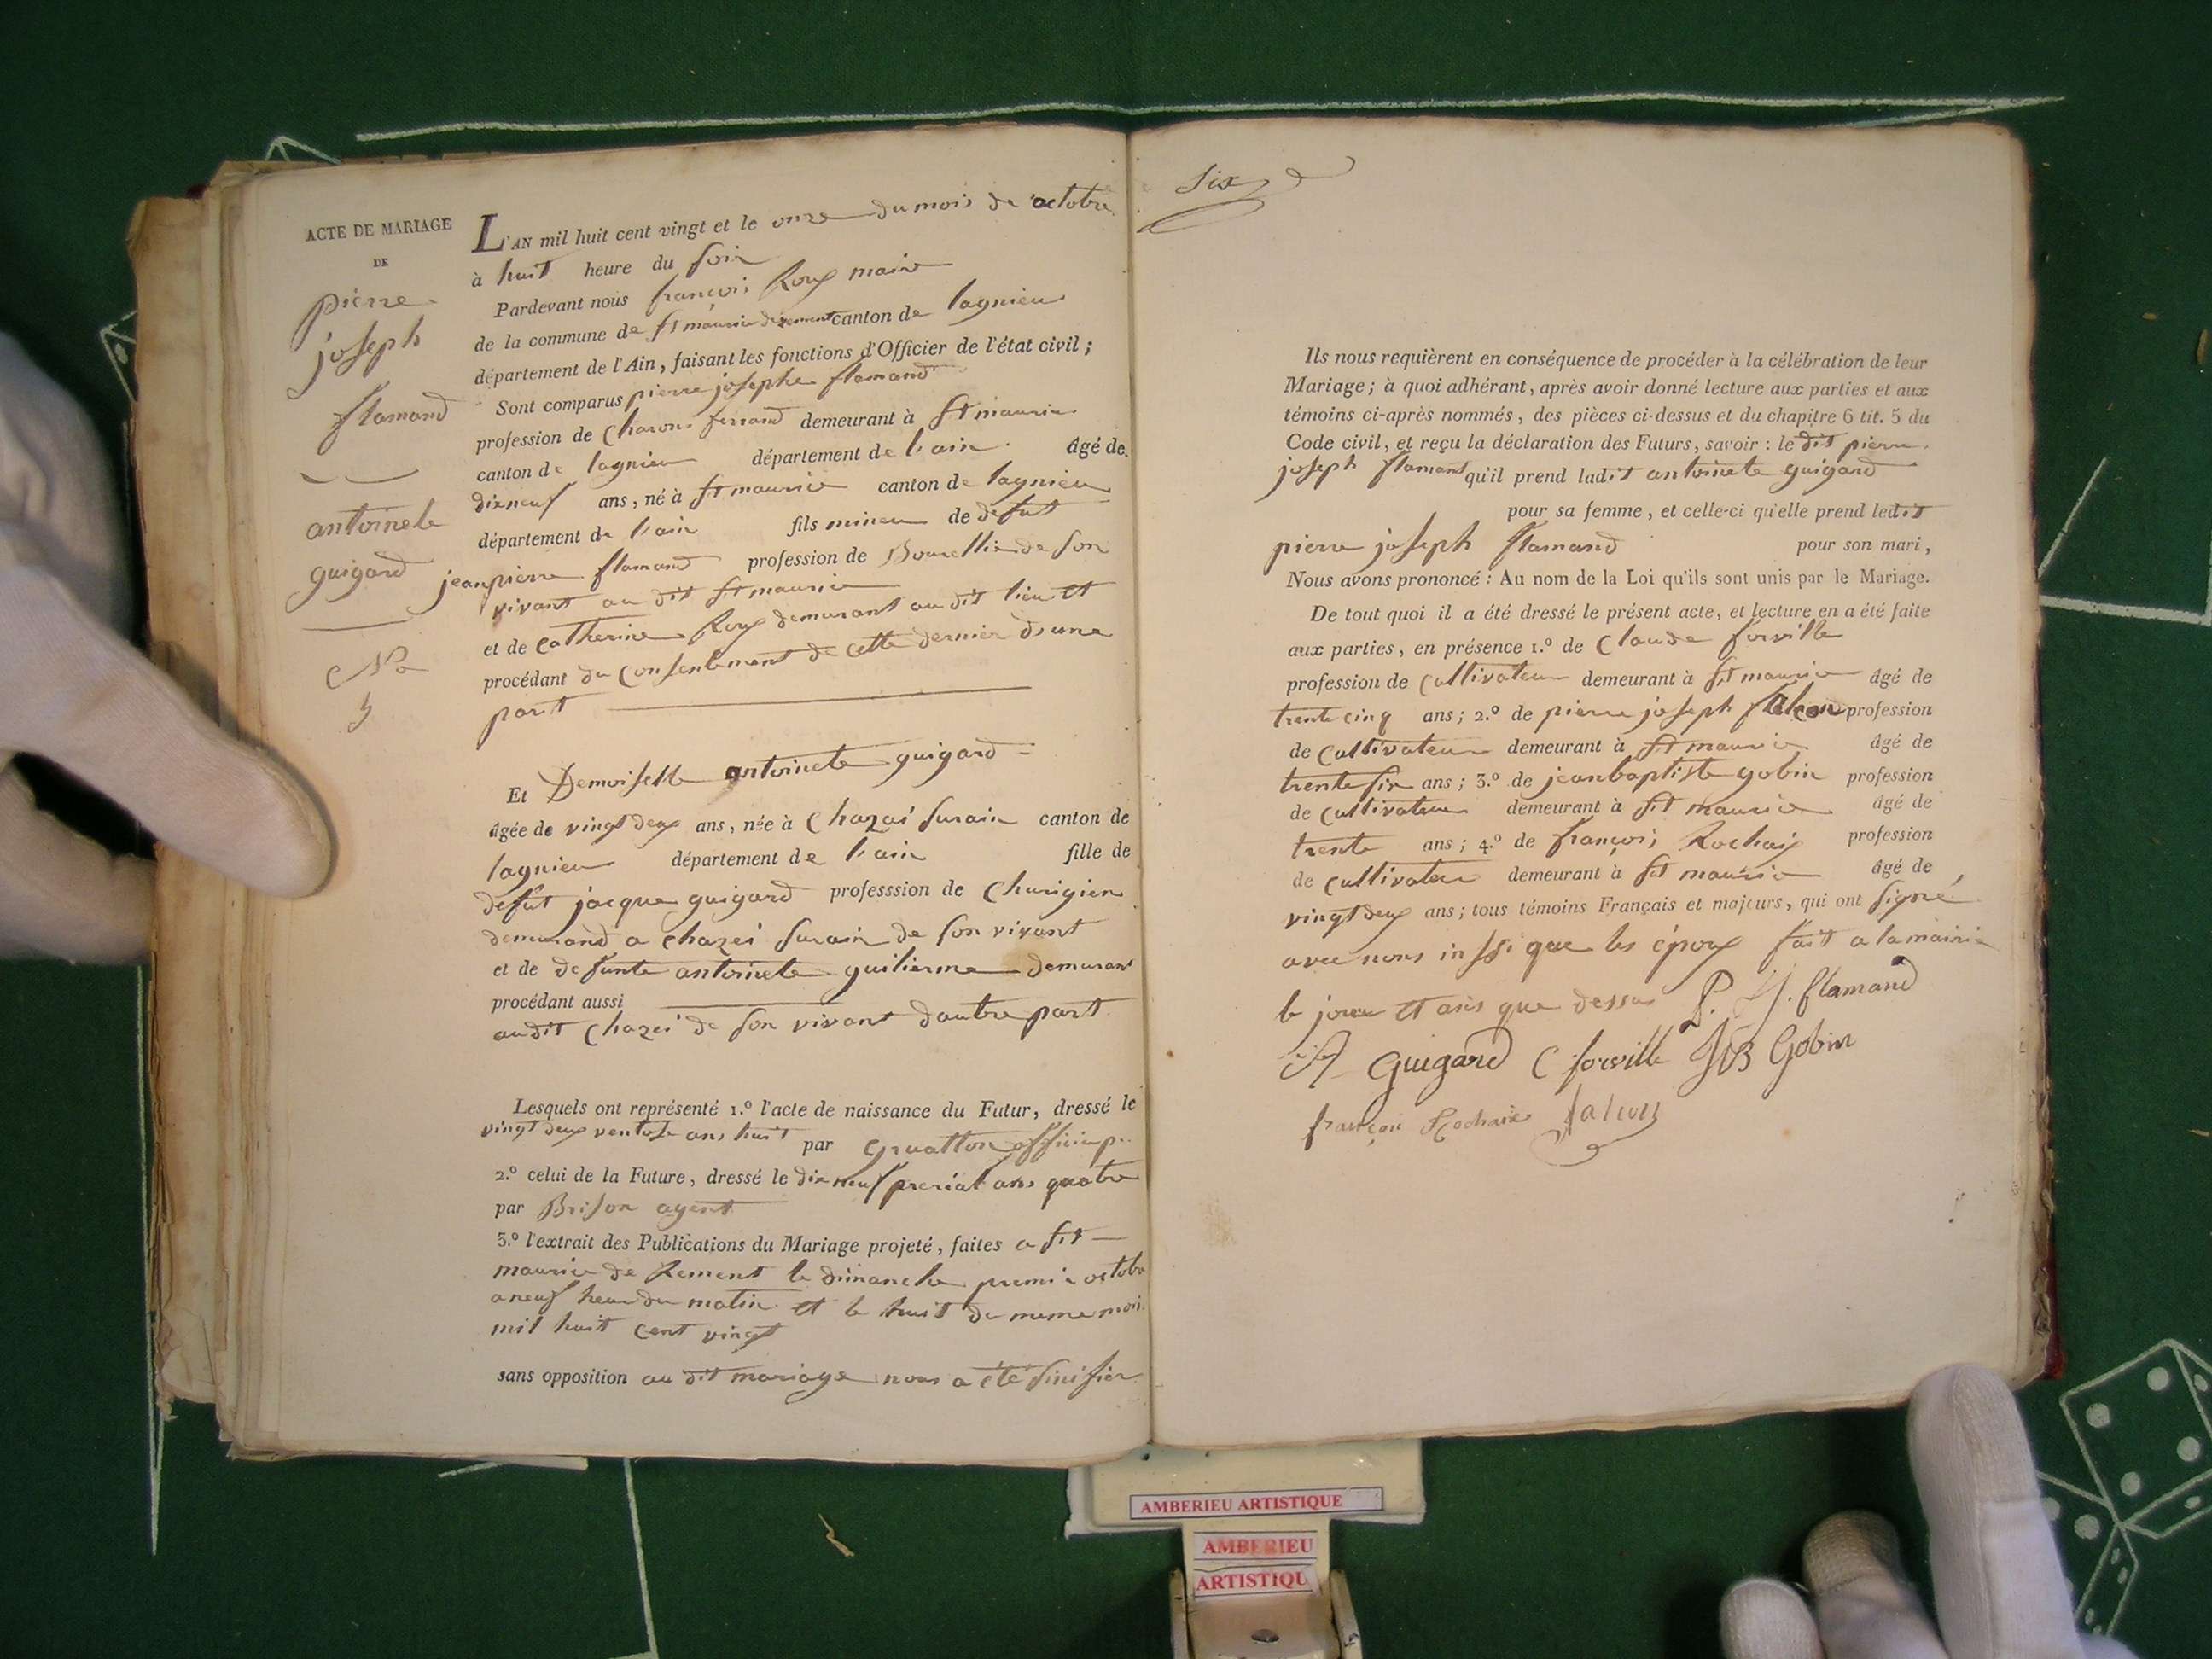 ACTE DE MARIAGE
DE
pierre
joseph
flamand
antoinete
guigard
No
5
L'AN mil huit cent vingt et le onze du mois de octobre
à huit heure du soir
Pardevant nous françois Roux maire
de la commune de st maurice de rement canton de lagnieu
département de l'Ain, faisant les fonctions d'Officier de l'état civil ;
Sont comparus pierre josephe flamand
profession de charon ferrand demeurant à st maurice
canton de lagnieu département de l'ain âgé de
dixneuf ans, né à st maurice canton de lagnieu
département de l'ain fils mineu de defut
jeanpierre flamand profession de Bourellie de son
vivant au dit st maurice
et de catherine Roux demurant au dit lieu et
procédant du consentement de cette dernier d'une
part
Et Demoiselle antoinete guigard
âgée de vingt deux ans, née à chazai surain canton de
lagnieu département de l'ain fille de
defut jacque guigard professsion de churigien
demurand a chazei surain de son vivant
et de defunte antoinete guilierme demurant
procédant aussi
audit chazei de son vivant dautre part
Lesquels ont représenté 1.º l'acte de naissance du Futur, dressé le
vingt deux ventose ans huit par gruatton officier p.
2.º celui de la Future, dressé le dix neuf prerial ans quatre
par Brison agent
3.º l'extrait des Publications du Mariage projeté, faites a st
maurice de Rement le dimanche premie octobre
a neuf heur du matin et le huit du meme moi
mil huit cent vingt
sans opposition au dit mariage nous a été sinifier
Six
Ils nous requièrent en conséquence de procéder à la célébration de leur
Mariage ; à quoi adhérant, après avoir donné lecture aux parties et aux
témoins ci-après nommés, des pièces ci-dessus et du chapitre 6 tit. 5 du
Code civil, et reçu la déclaration des Futurs, savoir : le dit pierre
joseph flamand qu'il prend ladit antoinete guigard
pour sa femme, et celle-ci qu'elle prend ledit
pierre joseph flamand pour son mari,
Nous avons prononcé : Au nom de la Loi qu'ils sont unis par le Mariage.
De tout quoi il a été dressé le présent acte, et lecture en a été faite
aux parties, en présence 1.º de claude forville
profession de cultivateur demeurant à st maurice âgé de
trente cinq ans ; 2.º de pierre joseph falcon profession
de cultivateur demeurant à st maurice âgé de
trente six ans ; 3.º de jeanbaptiste gobin profession
de cultivateur demeurant à st maurice âgé de
trente ans ; 4.º de françois Rochaix profession
de cultivateur demeurant à st maurice âgé de
vingt deux ans ; tous témoins Français et majeurs, qui ont signé
avec nous inssi que les époux fait a la mairie
le jour et ans que dessus P. J. flamand
A Guigard C forville JB Gobin
françois Rochaix falcon
AMBERIEU ARTISTIQUE
AMBERIEU
ARTISTIQU